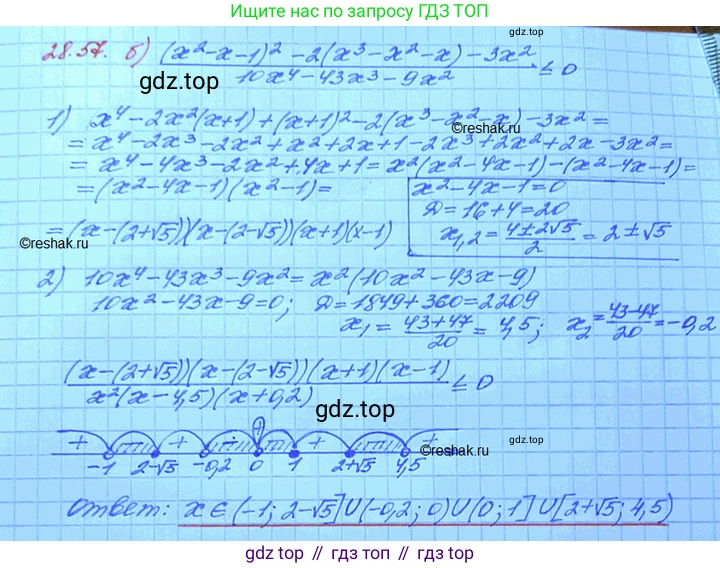 Ищите нас по запросу ГДЗ ТОП
28.57. б) (x²-x-1)² -2(x³-x²-x)-3x² / 10x⁴-43x³-9x² ≤ 0
gdz.top
1) x⁴-2x²(x+1)+(x+1)²-2(x³-x²-x)-3x²=
©reshak.ru
gdz.top
= x⁴-2x³-2x²+x²+2x+1-2x³+2x²+2x-3x²=
= x⁴-4x³-2x²+4x+1=x²(x²-4x-1)-(x²-4x-1)=
=(x²-4x-1)(x²-1)=
x²-4x-1=0
Д=16+4=20
x₁,₂= 4±2√5 / 2 = 2±√5
=(x-(2+√5))(x-(2-√5))(x+1)(x-1)
©reshak.ru
gdz.top
2) 10x⁴-43x³-9x²=x²(10x²-43x-9)
10x²-43x-9=0; Д=1849+360=2209
x₁= 43+47 / 20 = 4,5; x₂= 43-47 / 20 =-0,2
(x-(2+√5))(x-(2-√5))(x+1)(x-1) / x²(x-4,5)(x+0,2) ≤ 0
gdz.top
gdz.top
©reshak.ru
-1 2-√5 -0,2 0 1 2+√5 4,5
Ответ: x∈(-1; 2-√5]∪(-0,2; 0)∪(0; 1]∪[2+√5; 4,5)
gdz.top // гдз.топ // gdz.top